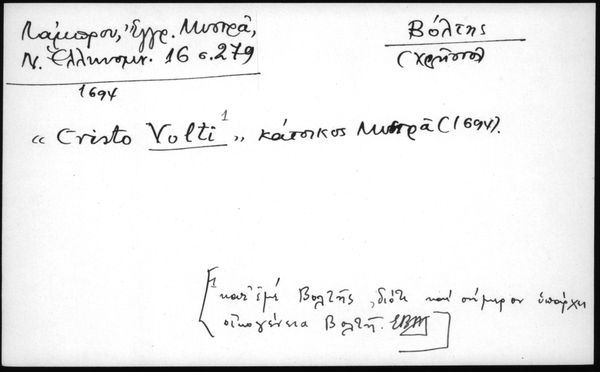 Λάμπρου, Ἔγγρ. Μυστρᾶ,
Ν. Ἑλληνομν. 16 σ. 279
1694
Βόλτης
(
« Cristo Volti ¹ », κάτοικος Μυστρᾶ (1694).
[¹ κατ' ἐμὲ Βολτῆς, διότι καὶ σήμερον ὑπάρχει
οἰκογένεια Βολτῆ. ]